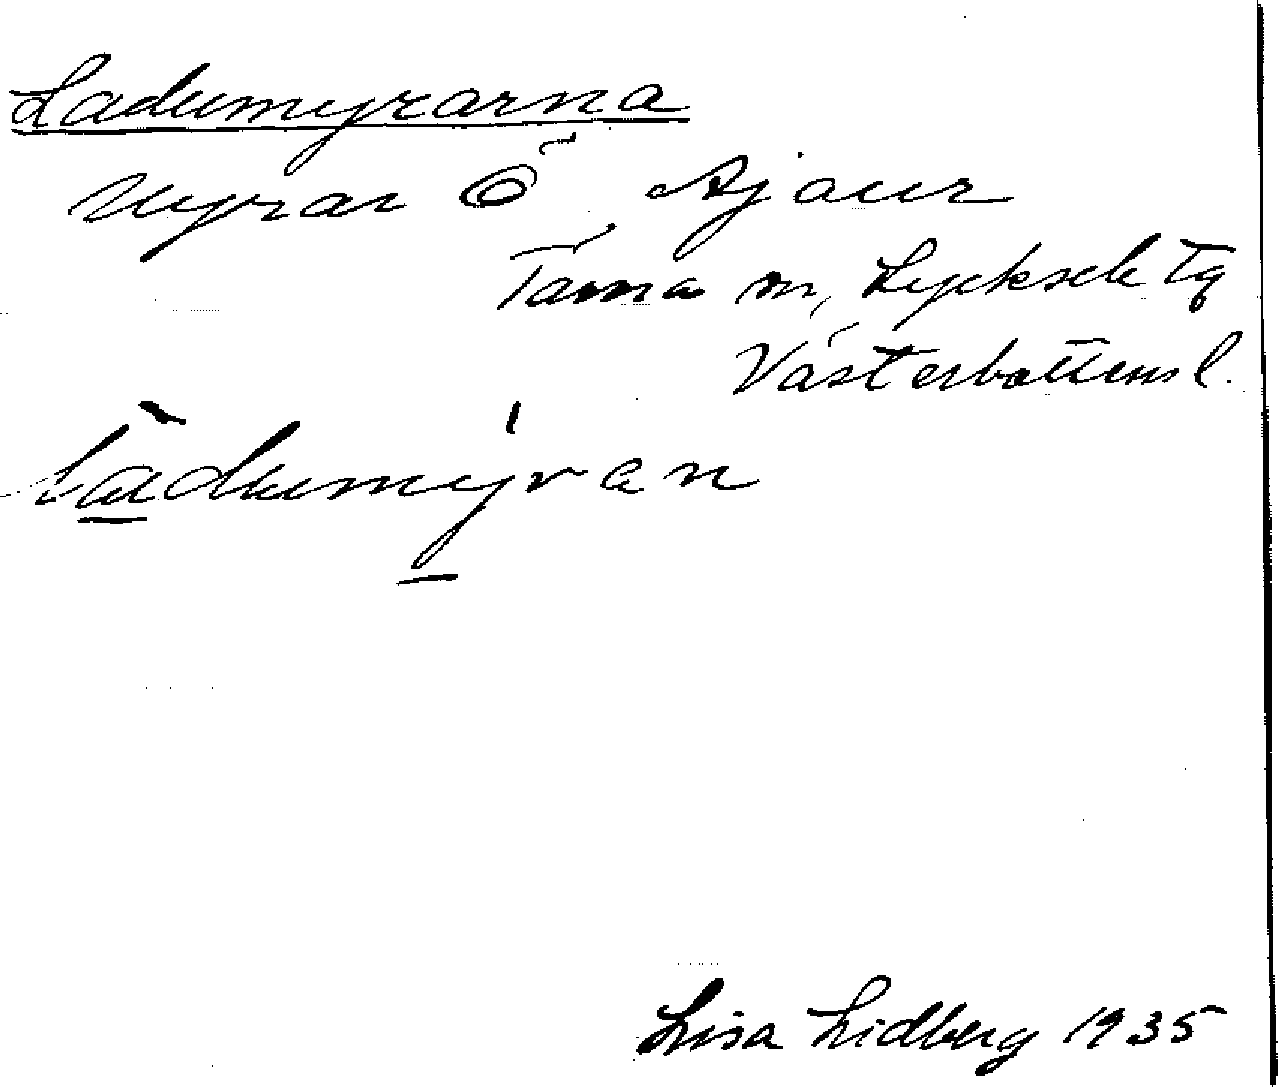 Ladumyrarna
Myrar Ö Ajaur
Tärna sn, Lycksele Tg
Västerbottens l.
làdumýran
Lisa Lidberg 1935